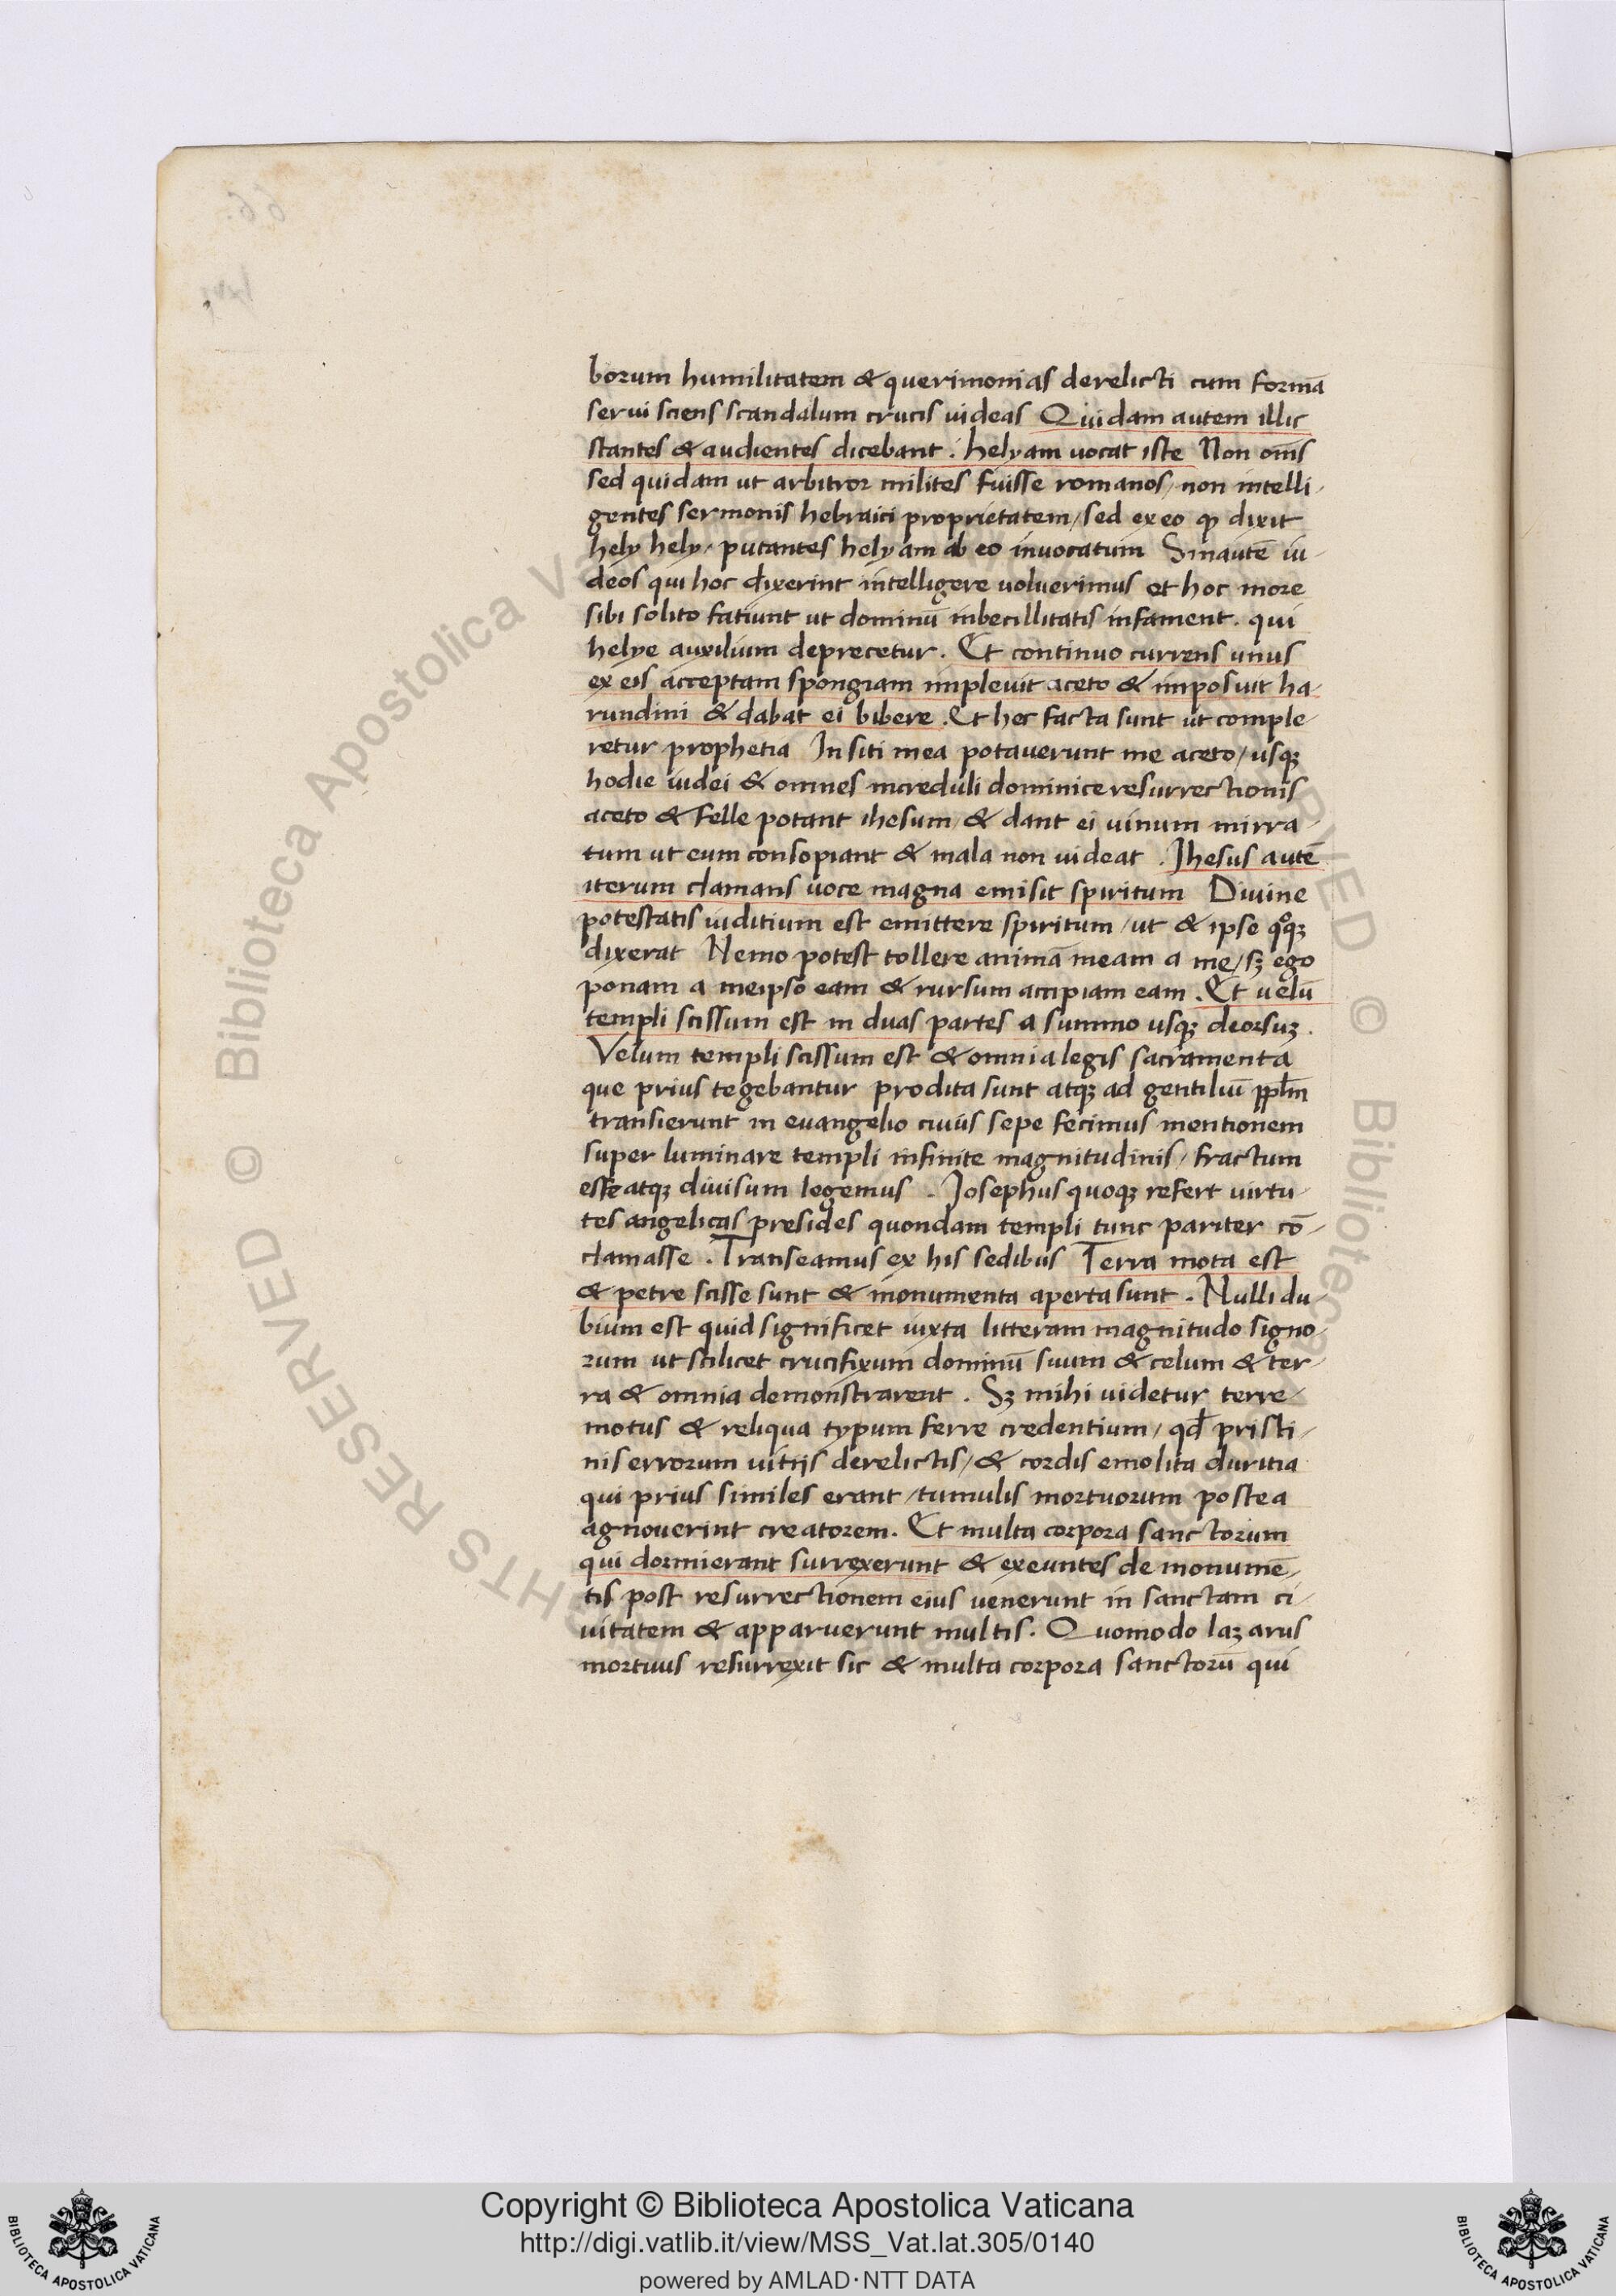 borum humilitatem & querimonias derelicti cum formā
servi sciens scandalum crucis videas Quidam autem illic
stantes & audientes dicebant . helyam vocat iste Non om̄s
sed quidam ut arbitror milites fuisse romanos / non intelli-
gentes sermonis hebraici proprietatem / sed ex eo qꝫ dixit
hely hely / putantes helyam ab eo invocatum Sin autē iu-
deos qui hoc dixerint intelligere voluerimus et hoc more
sibi solito fatiunt ut dominū inbecillitatis infament . qui
helye auxilium deprecetur . Et continuo currens unus
ex eis acceptam spongiam implevit aceto & imposuit ha-
rundini & dabat ei bibere . Et hec facta sunt ut comple-
retur prophetia In siti mea potaverunt me aceto / usqꝫ
hodie iudei & omnes increduli dominice resurrectionis
aceto & felle potant ihesum / & dant ei vinum mirra-
tum ut eum consopiant & mala non videat . Jhesus autē
iterum clamans voce magna emisit spiritum Divine
potestatis iuditium est emittere spiritum / ut & ipse qͦqꝫ
dixerat Nemo potest tollere animā meam a me / sꝫ ego
ponam a meipso eam & rursum accipiam eam . Et velū
templi scissum est in duas partes a summo usqꝫ deorsuꝫ .
Velum templi scissum est & omnia legis sacramenta
que prius tegebantur prodita sunt atqꝫ ad gentiliū ppl̄m
transierunt in evangelio cuius sepe fecimus mentionem
super luminare templi infinite magnitudinis / fractum
esse atqꝫ divisum legemus . Josephus quoqꝫ refert virtu-
tes angelicas presides quondam templi tunc pariter cō-
clamasse . Transeamus ex his sedibus Terra mota est
& petre scisse sunt & monumenta aperta sunt . Nulli du-
bium est quid significet iuxta litteram magnitudo signo-
rum ut scilicet crucifixum dominū suum & celum & ter-
ra & omnia demonstrarent . Sꝫ mihi videtur terre-
motus & reliqua typum ferre credentium / qd̄ pristi-
nis errorum vitijs derelictis / & cordis emolita duritia
qui prius similes erant / tumulis mortuorum postea
agnoverint creatorem . Et multa corpora sanctorum
qui dormierant surrexerunt & exeuntes de monumē-
tis post resurrectionem eius venerunt in sanctam ci-
vitatem & apparuerunt multis . Quomodo lazarus
mortuus resurrexit sic & multa corpora sanctorū qui
© Biblioteca Apostolica Vaticana
Copyright © Biblioteca Apostolica Vaticana
http://digi.vatlib.it/view/MSS_Vat.lat.305/0140
powered by AMLAD·NTT DATA
BIBLIOTECA APOSTOLICA VATICANA
BIBLIOTECA APOSTOLICA VATICANA